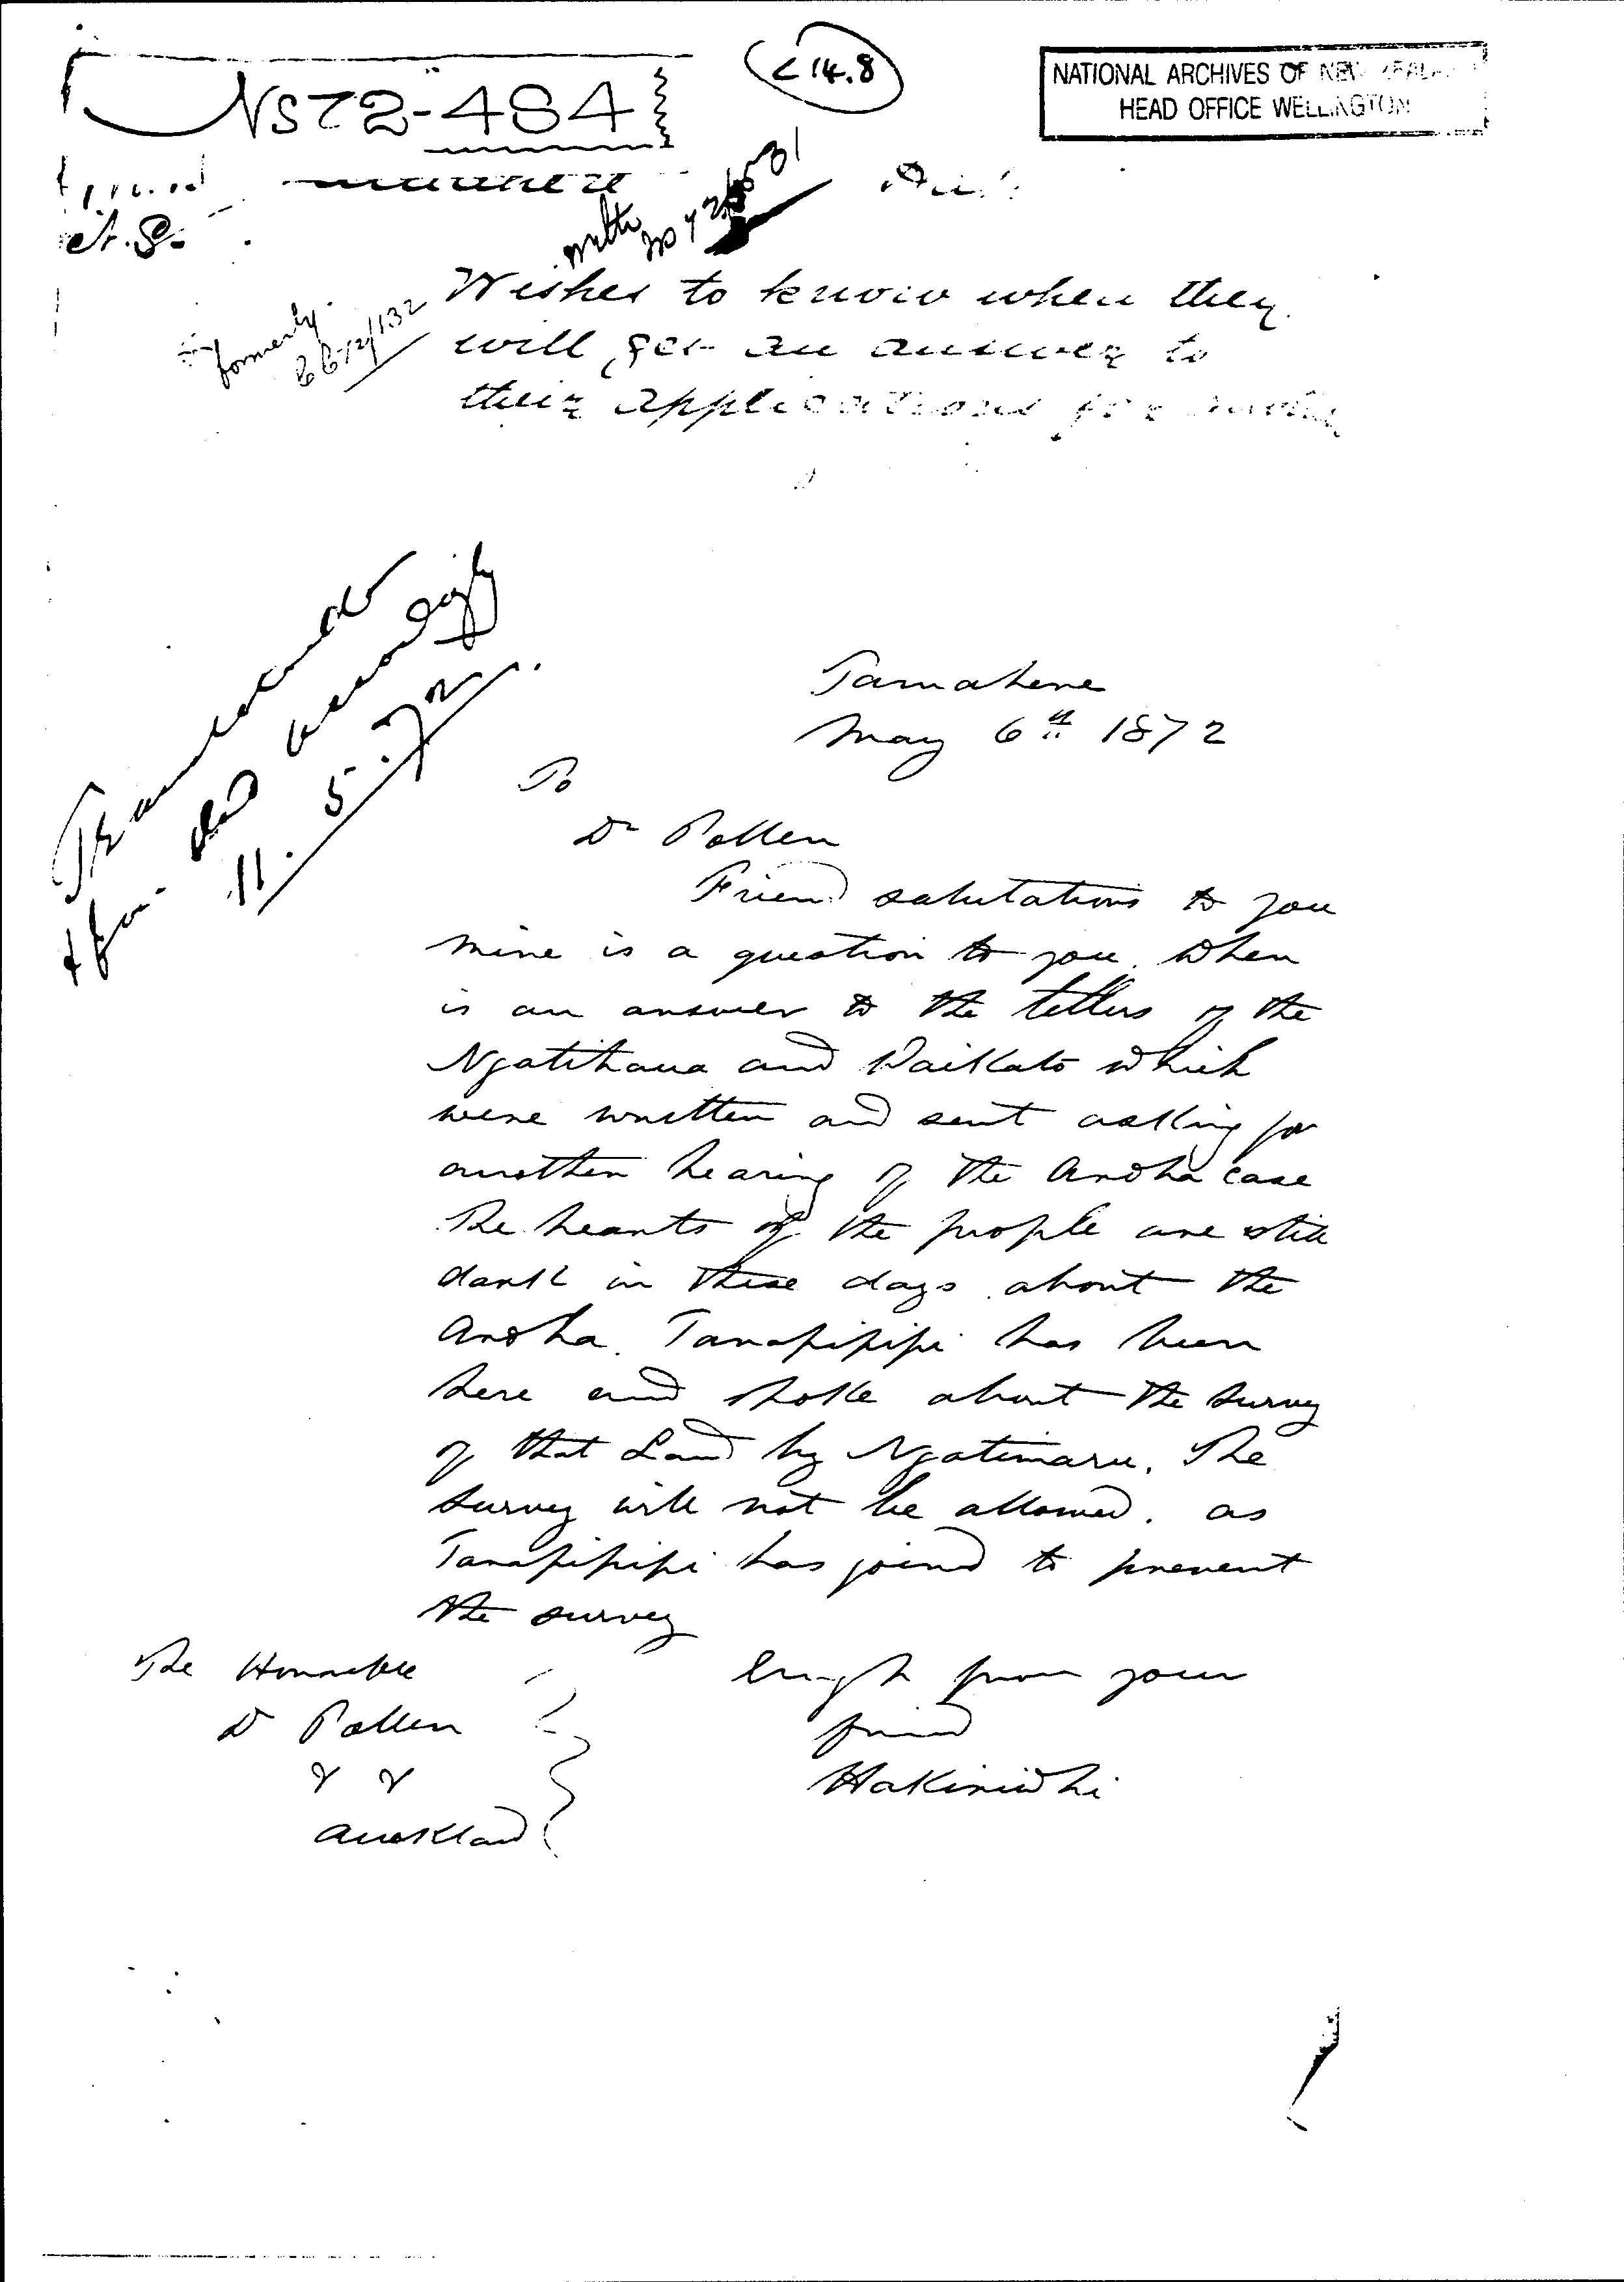 NS72-484
C 14.8
NATIONAL ARCHIVES OF NEW ZEALAND
HEAD OFFICE WELLINGTON
with
formerly
Wishes to know when they
will get an answer to
their applications for
11.5.72
Tamahere
May 6th 1872
To
Dr Pollen
Friend salutations to you
mine is a question to you. When
is an answer to the letters of the
Ngatihaua and Waikato which
were written and sent asking for
another hearing of the Aroha case
The hearts of the people are still
dark in these days about the
Aroha. Tanapipipi has been
here and spoke about the survey
of that Land by Ngatimaru. The
survey will not be allowed. as
Tanapipipi has joined to prevent
the survey
The Honorable
Dr Pollen
&c &c
Auckland
Enough from your
friend
Hakiriwhi